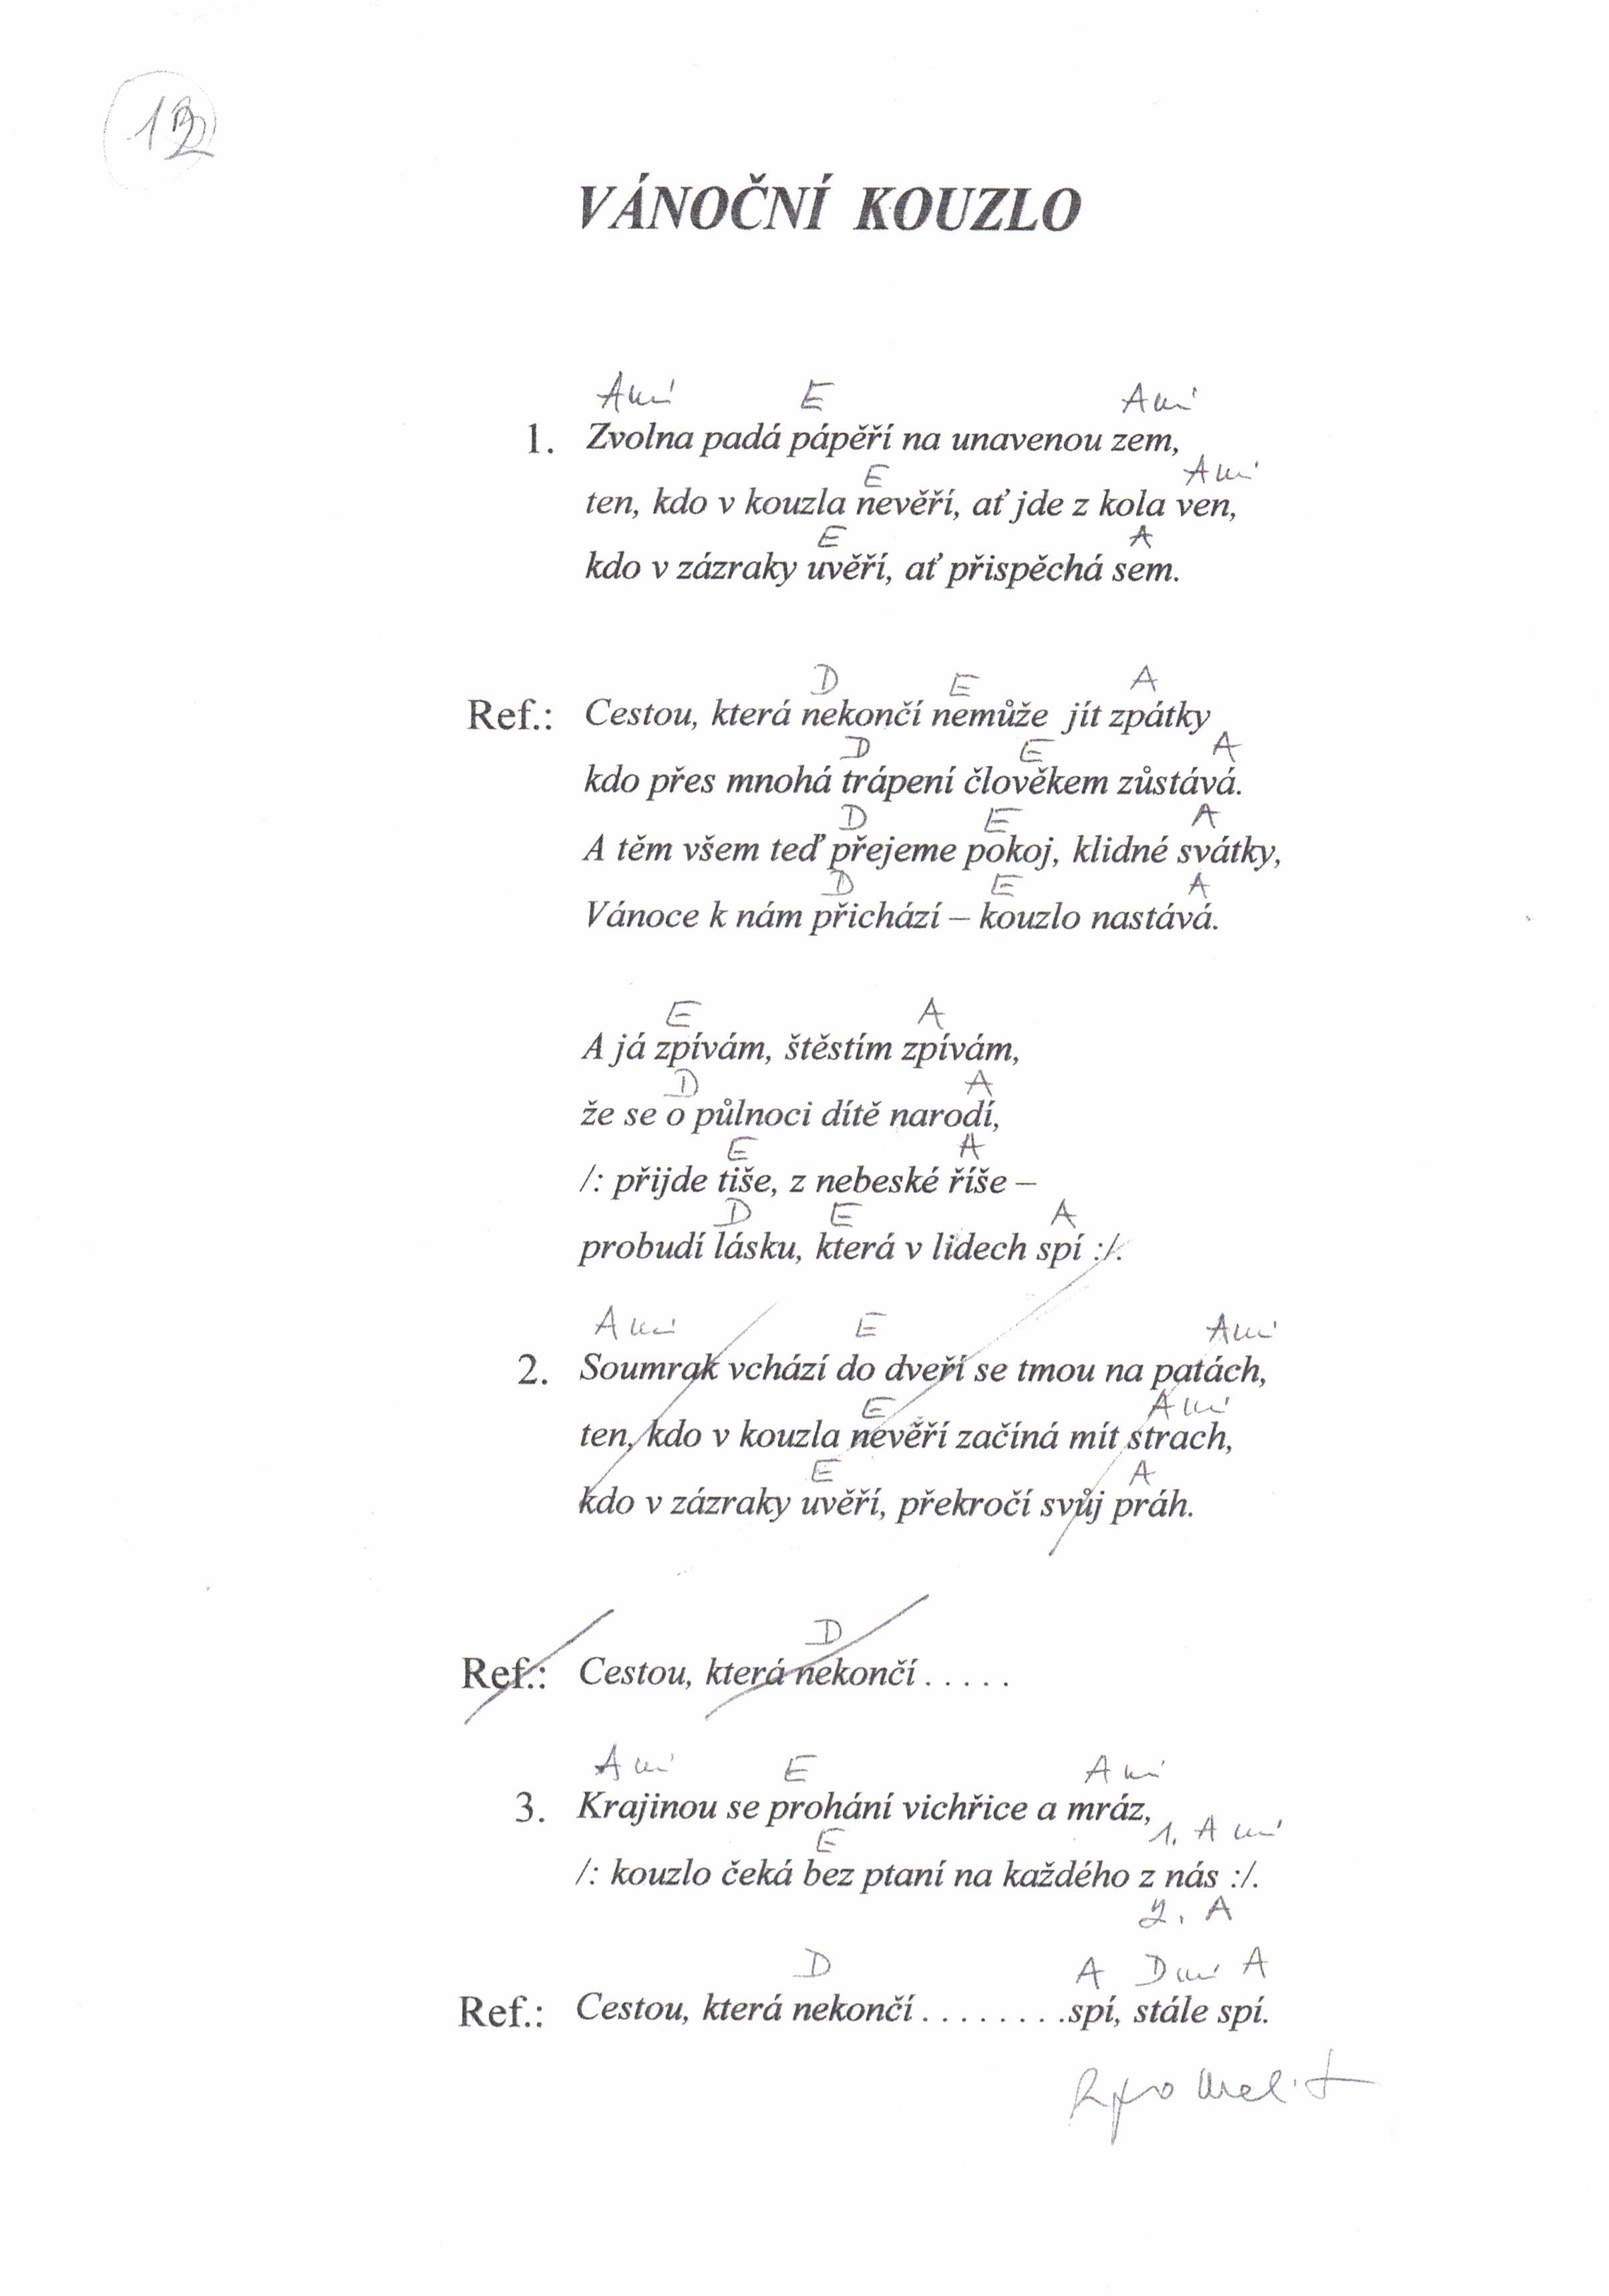 VÁNOČNÍ KOUZLO
Ami E Ami
1. Zvolna padá pápěří na unavenou zem,
E Ami
ten, kdo v kouzla nevěří, ať jde z kola ven,
E A
kdo v zázraky uvěří, ať přispěchá sem.
D E A
Ref.: Cestou, která nekončí nemůže jít zpátky
D E A
kdo přes mnohá trápení člověkem zůstává.
D E A
A těm všem teď přejeme pokoj, klidné svátky,
D E A
Vánoce k nám přichází – kouzlo nastává.
E A
A já zpívám, štěstím zpívám,
D A
že se o půlnoci dítě narodí,
E A
/: přijde tiše, z nebeské říše –
D E A
probudí lásku, která v lidech spí :/.
Ami E Ami
2. Soumrak vchází do dveří se tmou na patách,
E Ami
ten, kdo v kouzla nevěří začíná mít strach,
E A
kdo v zázraky uvěří, překročí svůj práh.
D
Ref.: Cestou, která nekončí . . . . .
Ami E Ami
3. Krajinou se prohání vichřice a mráz,
E 1. Ami
/: kouzlo čeká bez ptaní na každého z nás :/.
2. A
D A Dmi A
Ref.: Cestou, která nekončí . . . . . . . .spí, stále spí.